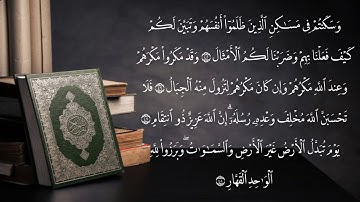 وَسَكَنتُمْ فِى مَسَـٰكِنِ ٱلَّذِينَ ظَلَمُوٓا۟ أَنفُسَهُمْ وَتَبَيَّنَ لَكُمْ
كَيْفَ فَعَلْنَا بِهِمْ وَضَرَبْنَا لَكُمُ ٱلْأَمْثَالَ ۝ وَقَدْ مَكَرُوا۟ مَكْرَهُمْ
وَعِندَ ٱللَّهِ مَكْرُهُمْ وَإِن كَانَ مَكْرُهُمْ لِتَزُولَ مِنْهُ ٱلْجِبَالُ ۝ فَلَا
تَحْسَبَنَّ ٱللَّهَ مُخْلِفَ وَعْدِهِۦ رُسُلَهُۥٓ ۗ إِنَّ ٱللَّهَ عَزِيزٌ ذُو ٱنتِقَامٍ ۝
يَوْمَ تُبَدَّلُ ٱلْأَرْضُ غَيْرَ ٱلْأَرْضِ وَٱلسَّمَـٰوَٰتُ ۖ وَبَرَزُوا۟ لِلَّهِ
ٱلْوَٰحِدِ ٱلْقَهَّارِ ۝